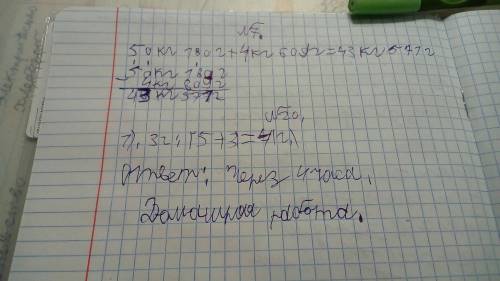 №7.
50кг 180г+4кг 609г=43кг 571г
50кг 180г
4кг 609г
43 кг 571г
№20.
Ответ: Через 4 часа.
Домашняя работа.